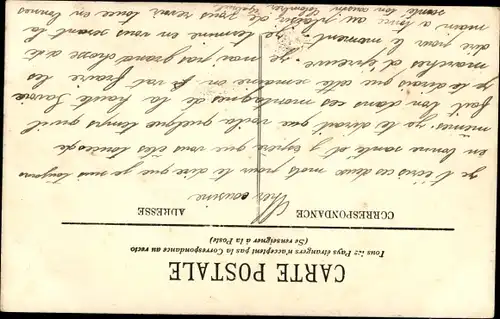 CARTE POSTALE
Tous les Pays étrangers n'acceptent pas la Correspondance au recto
(Se renseigner à la Poste)
CORRESPONDANCE
ADRESSE
Cher cousine
Je t'écris ces deux mots pour te dire que je suis toujours
en bonne santé et j'espère que vous êtes tous de
même, je te dirait que voila quelque temps qu'il
fait bon dans ces montagnes de la haute Savoie
je te dirais que cette semaine on vat faire les
marches d'épreuve. je nai pas grand chose a te
dire pour le moment. je termine en vous serant la
main a tous au plaisir de vous revoir tous en bonnes
santé ton cousin